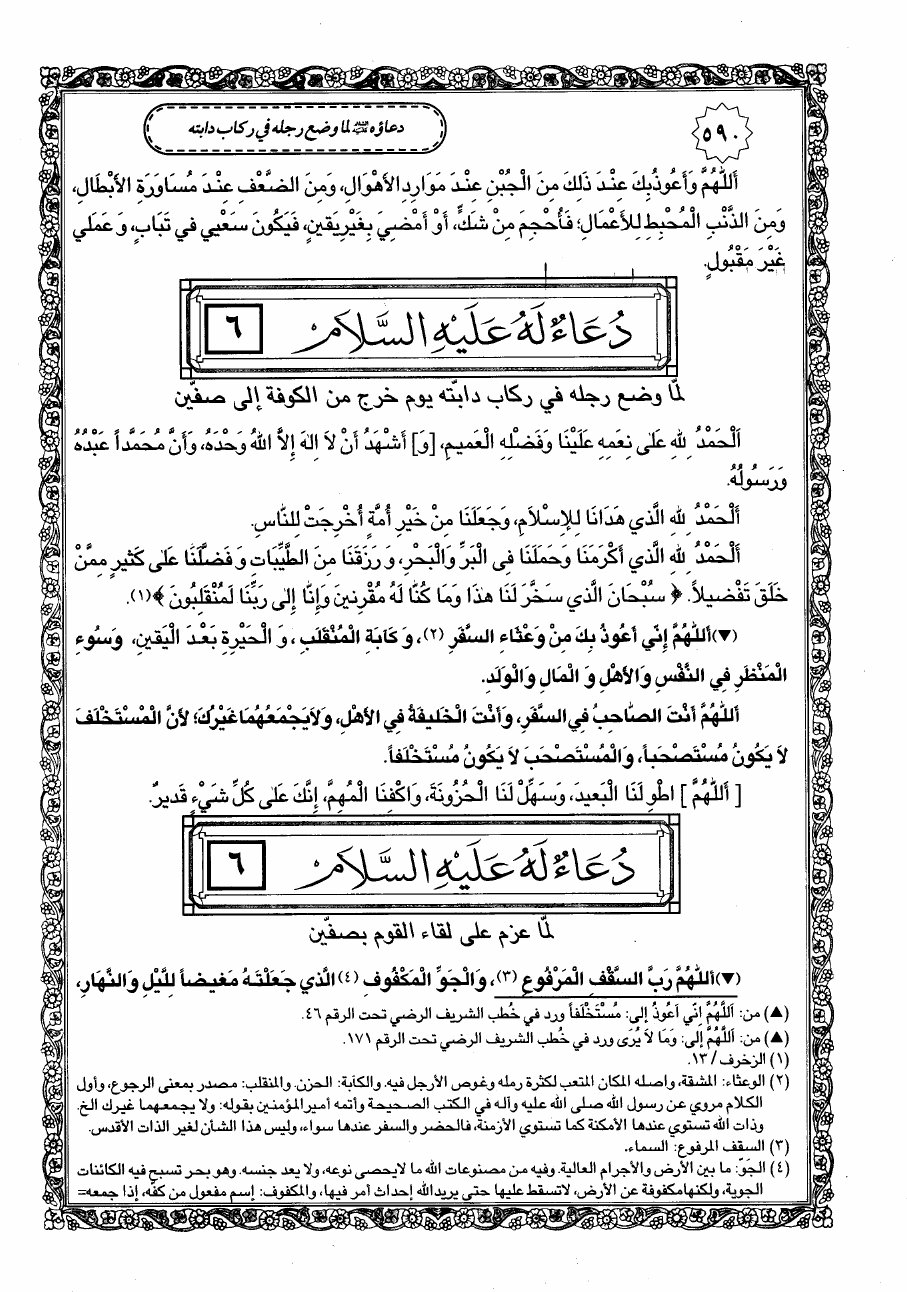 ٥٩٠
دعاؤه عليه السلام لما وضع رجله في ركاب دابته
أَللّٰهُمَّ وَأَعُوذُ بِكَ عِنْدَ ذَلِكَ مِنَ الْجُبْنِ عِنْدَ مَوَارِدِ الأَهْوَالِ، وَمِنَ الضَّعْفِ عِنْدَ مُسَاوَرَةِ الأَبْطَالِ،
وَمِنَ الذَّنْبِ الْمُحْبِطِ لِلأَعْمَالِ؛ فَأُحْجِمَ مِنْ شَكٍّ، أَوْ أَمْضِيَ بِغَيْرِ يَقينٍ، فَيَكُونَ سَعْيي في تَبَابٍ، وَ عَمَلي
غَيْرَ مَقْبُولٍ.
دُعَاءٌ لَهُ عَلَيْهِ السَّلاَمُ
٦
لمّا وضع رجله في ركاب دابّته يوم خرج من الكوفة إلى صفّين
اَلْحَمْدُ للهِ عَلىٰ نِعَمِهِ عَلَيْنَا وَفَضْلِهِ الْعَميمِ، [وَ] أَشْهَدُ أَنْ لاَ اِلهَ إِلاَّ اللهُ وَحْدَهُ، وَأَنَّ مُحَمَّداً عَبْدُهُ
وَرَسُولُهُ.
أَلْحَمْدُ للهِ الَّذي هَدَانَا لِلإِسْلاَمِ، وَجَعَلَنَا مِنْ خَيْرِ أُمَّةٍ أُخْرِجَتْ لِلنَّاسِ.
أَلْحَمْدُ للهِ الَّذي أَكْرَمَنَا وَحَمَلَنَا فِى الْبَرِّ وَالْبَحْرِ، وَ رَزَقَنَا مِنَ الطَّيِّبَاتِ وَفَضَّلَنَا عَلىٰ كَثيرٍ مِمَّنْ
خَلَقَ تَفْضيلاً. ﴿ سُبْحَانَ الَّذي سَخَّرَ لَنَا هٰذَا وَمَا كُنَّا لَهُ مُقْرِنينَ وَإِنَّا إِلىٰ رَبِّنَا لَمُنْقَلِبُونَ ﴾(١).
(▼)أَللّٰهُمَّ إِنّي أَعُوذُ بِكَ مِنْ وَعْثَاءِ السَّفَرِ (٢)، وَ كَابَةِ الْمُنْقَلَبِ، وَ الْحَيْرَةِ بَعْدَ الْيَقينِ، وَسُوءِ
الْمَنْظَرِ فِي النَّفْسِ وَالأَهْلِ وَ الْمَالِ وَالْوَلَدِ.
أَللّٰهُمَّ أَنْتَ الصَّاحِبُ فِي السَّفَرِ، وَأَنْتَ الْخَليفَةُ فِي الأَهْلِ، وَلاَيَجْمَعُهُمَا غَيْرُكَ؛ لأَنَّ الْمُسْتَخْلَفَ
لاَ يَكُونُ مُسْتَصْحَباً، وَالْمُسْتَصْحَبَ لاَ يَكُونُ مُسْتَخْلَفاً.
[ أَللّٰهُمَّ ] اطْوِ لَنَا الْبَعيدَ، وَسَهِّلْ لَنَا الْحُزُونَةَ، وَاكْفِنَا الْمُهِمَّ، إِنَّكَ عَلىٰ كُلِّ شَيْءٍ قَديرٌ.
دُعَاءٌ لَهُ عَلَيْهِ السَّلاَمُ
٦
لمّا عزم على لقاء القوم بصفّين
(▼)أَللّٰهُمَّ رَبَّ السَّقْفِ الْمَرْفُوعِ (٣)، وَالْجَوِّ الْمَكْفُوفِ (٤)الَّذي جَعَلْتَهُ مَغيضاً لِلَّيْلِ وَالنَّهَارِ،
(▲) من: أَللّٰهُمَّ إِنّي أَعُوذُ إلى: مُسْتَخْلَفاً ورد في خُطب الشريف الرضي تحت الرقم ٤٦.
(▲) من: أَللّٰهُمَّ إلى: وَمَا لاَ يُرَى ورد في خُطب الشريف الرضي تحت الرقم ١٧١.
(١) الزخرف / ١٣.
(٢) الوعثاء: المشقة، واصله المكان المتعب لكثرة رمله وغوص الأرجل فيه. والكآبة: الحزن. والمنقلب: مصدر بمعنى الرجوع، وأول
الكلام مروي عن رسول الله صلى الله عليه وآله في الكتب الصحيحة وأتمه أميرالمؤمنين بقوله: ولا يجمعهما غيرك الخ.
وذات الله تستوي عندها الأمكنة كما تستوي الأزمنة، فالحضر والسفر عندها سواء، وليس هذا الشأن لغير الذات الأقدس.
(٣) السقف المرفوع: السماء.
(٤) الجَوّ: ما بين الأرض والأجرام العالية. وفيه من مصنوعات الله ما لايحصى نوعه، ولا يعد جنسه. وهو بحر تسبح فيه الكائنات
الجوية، ولكنها مكفوفة عن الأرض، لاتسقط عليها حتى يريد الله إحداث أمر فيها، والمكفوف: إسم مفعول من كفّه، إذا جمعه=